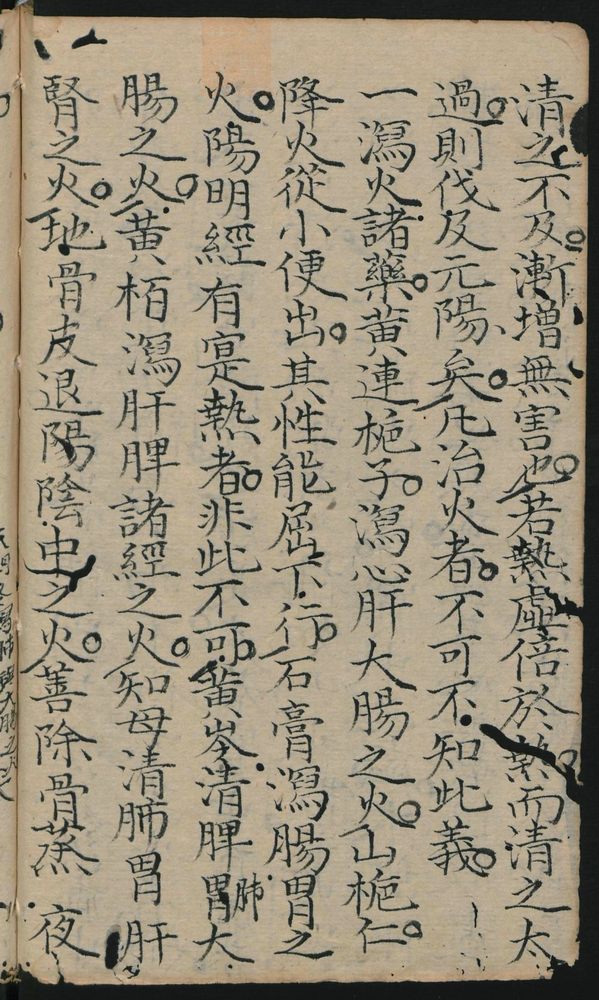 清之不及。漸增無害也。若熱虛倍於熱。而清之太
過。則伐及元陽、矣。凡治火者。不可不知此義。
一瀉火諸藥。黃連梔子。瀉心肝大腸之火。山梔仁。
降火從小便出。其性能屈下行。石膏瀉腸胃之
火。陽明經有寔熱者。非此不可。黃岑清脾胃肺大
腸之火。黃栢瀉肝脾諸經之火。知母清肺胃肝
腎之火。地骨皮退陽陰中之火。善除骨蒸 夜